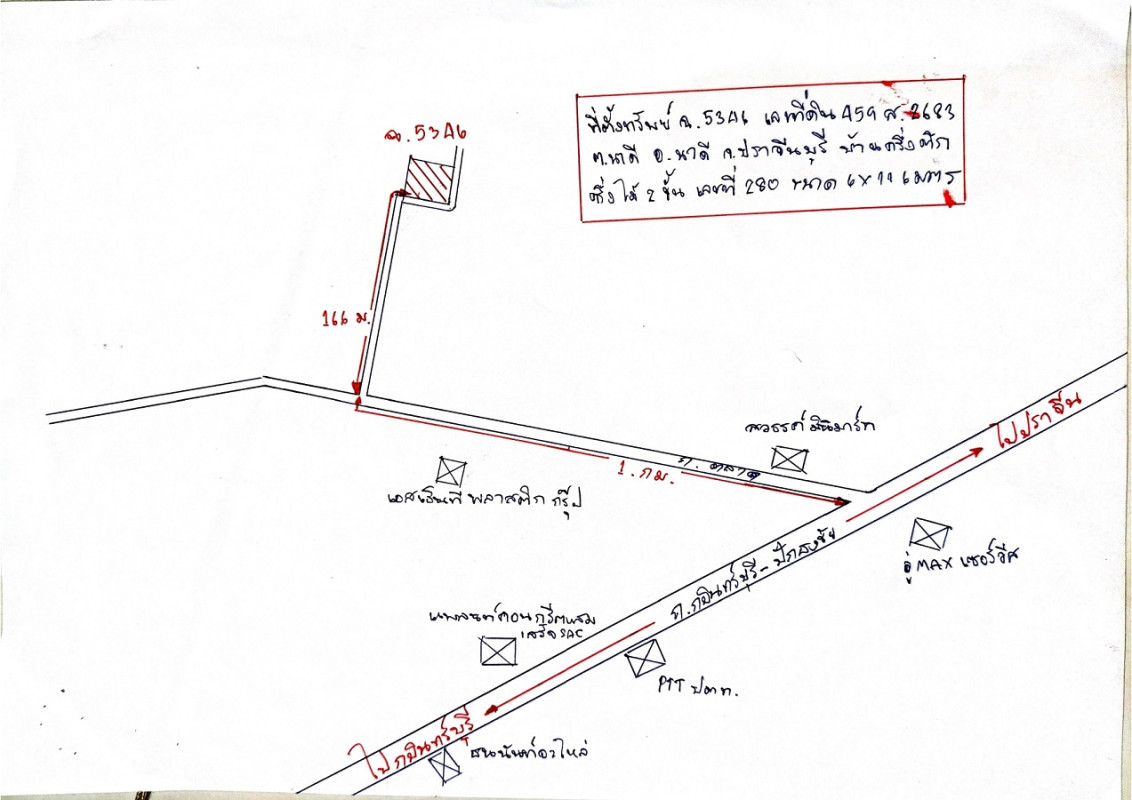 ฉ. 5346
ที่ตั้งทรัพย์ ฉ. 5346 เลขที่ดิน 459 ส. 2683
ต.นาดี อ.นาดี จ.ปราจีนบุรี บ้านครึ่งตึก
ครึ่งไม้ 2 ชั้น เลขที่ 280 ขนาด 6×11 เมตร
166 ม.
สวรรค์ มินิมาร์ท
ไปปราจีน
1. กม.
ถ. ตลาด
เอสเอ็นที พลาสติก กรุ๊ป
อู่ MAX เซอร์วิส
ถ.กบินทร์บุรี - ปักธงชัย
แพลนท์คอนกรีตผสม
เสร็จ SAC
PTT ปตท.
ไปกบินทร์บุรี
ธนนันท์อะไหล่